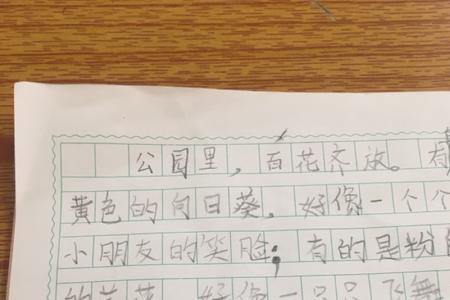 公园里，百花齐放。有
黄色的向日葵，好像一个个
小朋友的笑脸；有的是粉
的 好像一只只飞舞